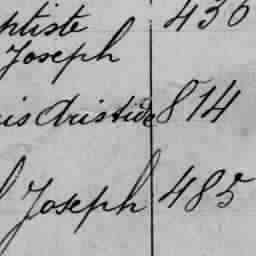 ptiste 436
Joseph
is Aristide 814
Joseph 485